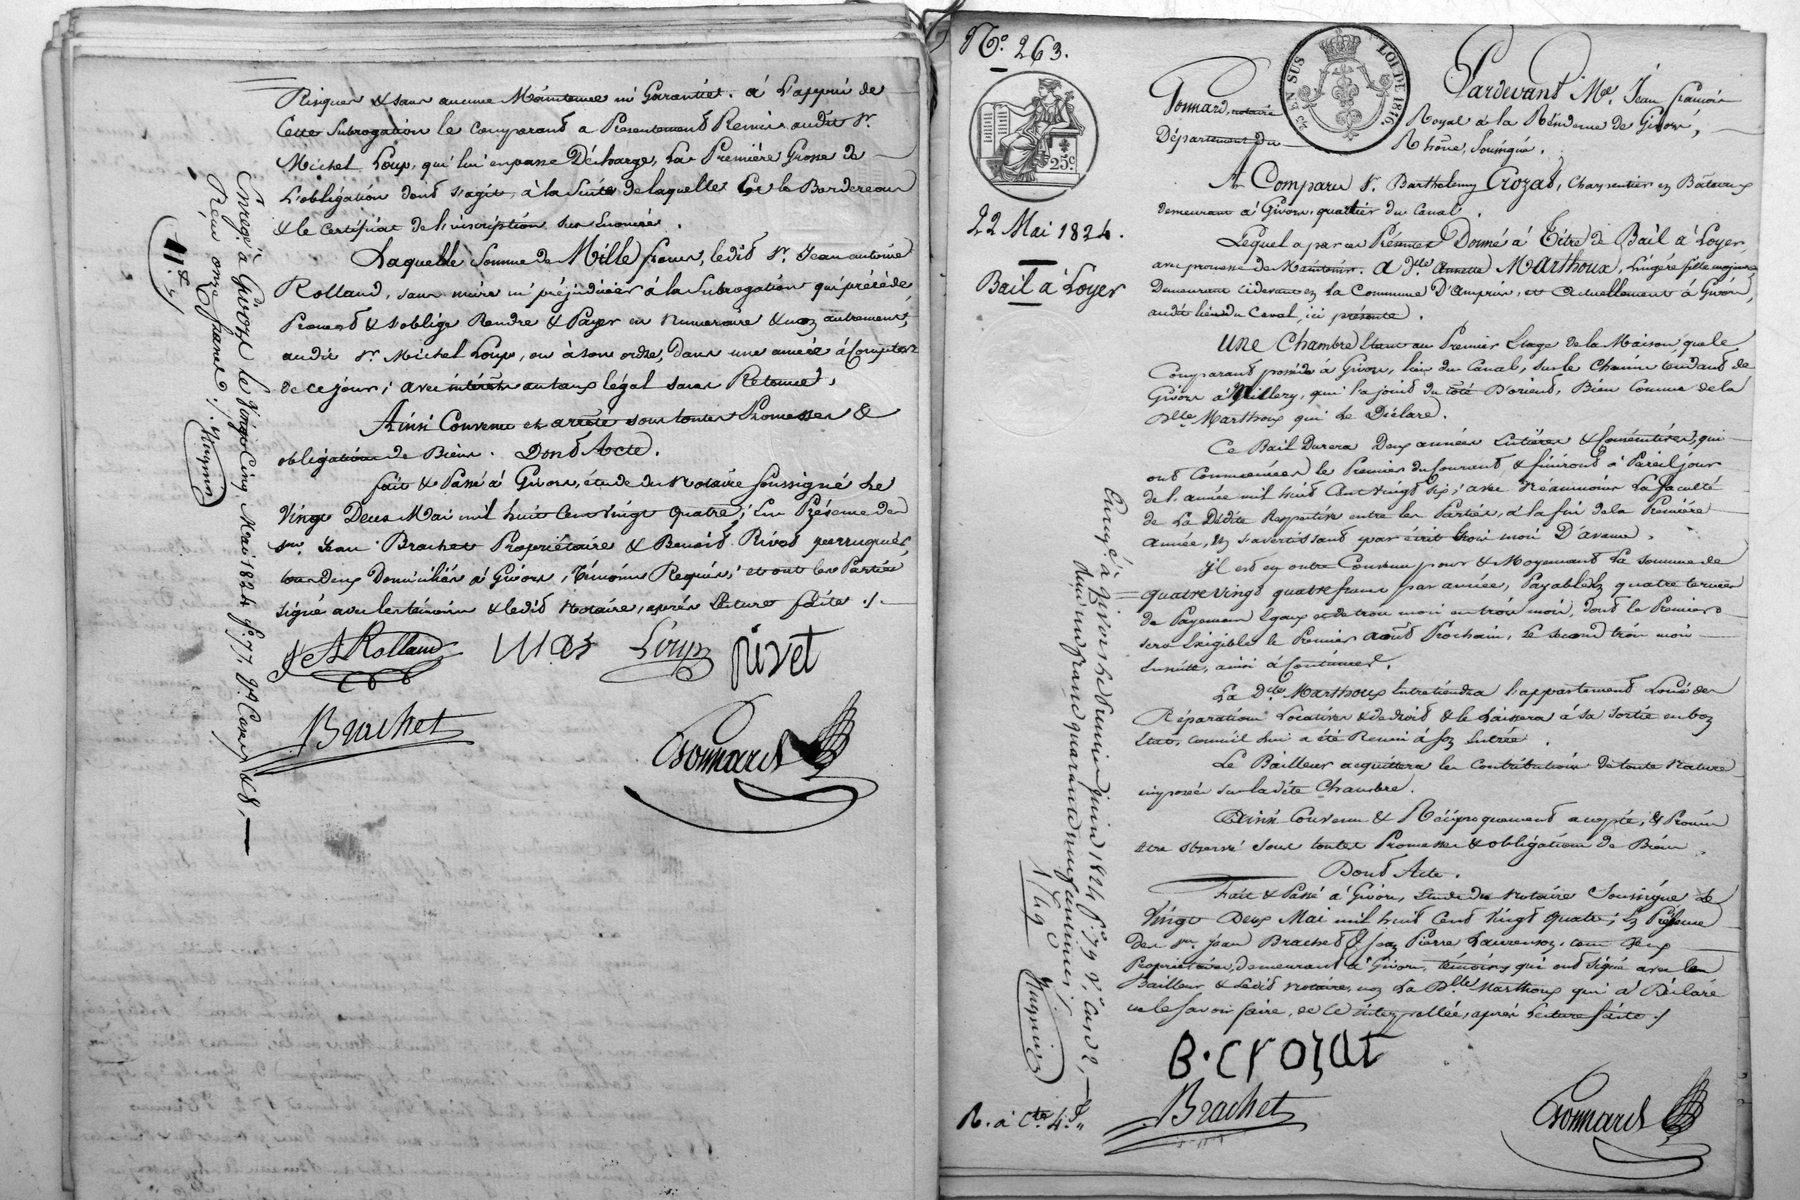 Risques & sans aucune Maintenue ni Garantie. à L'appui de
Cette Subrogation le Comparant a Présentement Remis audit Sr.
Michel Loup, qui lui en passe Décharge, La Première Grosse de
L'obligation dont s'agit, à la Suite de laquelle Est le Bordereau
& le Certificat de l'inscription sus Enoncée.
Laquelle Somme de Mille francs, ledit Sr. Jean antoine
Rolland, sans nuire ni préjudicier à la Subrogation qui précède,
Promet & s'oblige Rendre & Payer en Numeraire & non autrement,
audit Sr. Michel Loup, ou à Son ordre, Dans une année à Compter
de ce jour; avec intérêts au taux légal sans Retenue.
Ainsi Convenu et arrêté sous toutes Promesses &
obligations de Biens. Dont Acte.
fait & Passé à Givors, étude du Notaire soussigné Le
Vingt Deux Mai mil huit Cent vingt quatre; En Présence des
Srs. Jean Brachet Propriétaire & Benoit Rivet perruquier,
tous deux Domiciliés à Givors, témoins Requis; et ont les Parties
signé avec les témoins & ledit Notaire, après lecture faite ./.
JA Rolland Loup rivet
Brachet
Bonnard
Enregé. à Givors le Vingt Cinq Mai 1824 fo. 77. Vo. Cases 7 & 8,
Reçu onze francs ./.
N°. 263.
25c.
22 Mai 1824.
Bail à Loyer
EN SUS
LOI DE 1816.
Pardevant Me. Jean françois
Bonnard, notaire Royal à la Résidence de Givors,
Département du Rhône, Soussigné.
A Comparu Sr. Barthelemy Crozat, Charpentier en Bateaux
demeurant à Givors, quartier du Canal.
Lequel a par ces Présentes Donné à Titre de Bail à Loyer,
avec promesse de Maintenir. A Dlle. Annette Marthoux, Lingère fille majeure
Demeurant cidevant en la Commune D'Ampuis, et actuellement à Givors,
audit lieu du Canal, ici présente.
Une Chambre Étant au Premier Etage de la Maison, que le
Comparant possède à Givors, lieu du Canal, sur le Chemin tendant de
Givors à Millery, qui l'ajoint du côté D'orient, Bien Connue de la
Dlle. Marthoux qui Le Déclare.
Ce Bail Durera Deux années Entières & Consécutives, qui
ont Commencées le Premier du Courant, & finiront à Pareil jour
de l'année mil huit Cent vingt six; avec Néanmoins La faculté
de La Dédite Respective entre les Parties, à la fin de la Première
année, En s'avertissant par écrit trois mois D'avance.
Il est en outre Convenu pour & Moyennant La Somme de
quatre Vingt quatre francs par année, Payable en quatre termes
de Payemens Egaux et de trois mois en trois mois, dont le Premier
sera Exigible le Premier août Prochain, Le second trois mois
Ensuite, ainsi à Continuer.
La Dlle. Marthoux Entretiendra l'appartement Loué des
Réparations Locatives & de droit & le Laissera à sa sortie en bon
Etat, comme il lui a été Remis à son Entrée.
Le Bailleur acquittera les Contributions de toute Nature
imposées sur ladite Chambre.
Ainsi Convenu & Réciproquement accepté, & Promis
être observé sous toutes Promesses & obligations de Biens.
Dont Acte.
Fait & Passé à Givors, Etude du Notaire Soussigné Le
Vingt Deux Mai mil huit Cent Vingt quatre; En Présence
des Srs. Jean Brachet & Jean Pierre Laurenson, tous deux
Propriétaires, demeurant à Givors, témoins qui ont signé avec le
Bailleur & Ledit Notaire, non La Dlle. Marthoux qui a Déclaré
ne le savoir faire, de ce interpellée, après Lecture faite ./
B. Crozat
Brachet
Bonnard
Enregé. à Givors Le Premier Juin 1824 fo. 79 Vo. Case 2,
Reçu un franc quarante neuf centimes ./.
R. à Cte. 4.f.